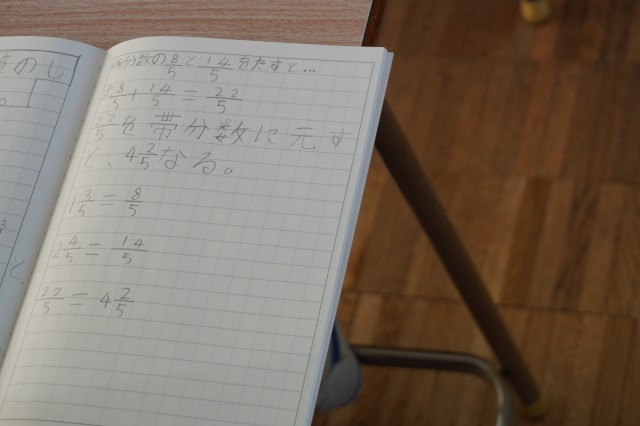 仮分数の8/5と14/5をたすと…
8/5+14/5=22/5
22/5を帯分数に元す
と、4 2/5なる。
1 3/5=8/5
2 4/5=14/5
22/5=4 2/5